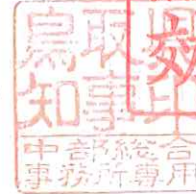 鳥取
知事
中部総合
事務所専用